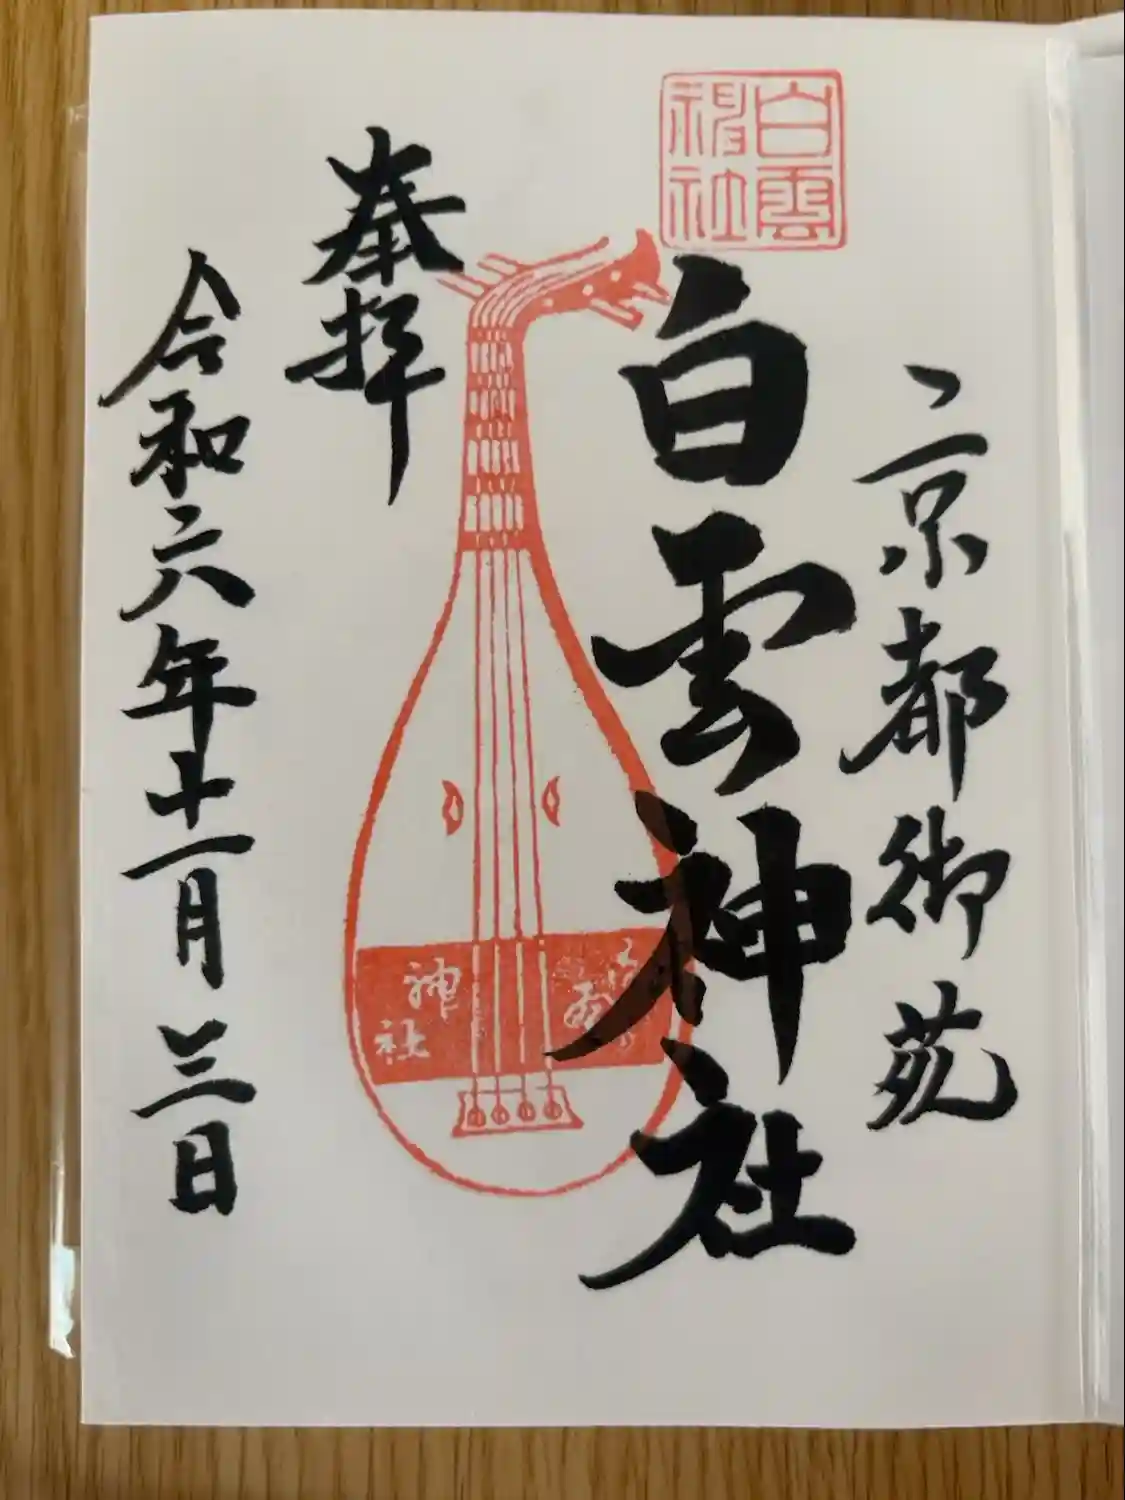 白雲
神社
京都御苑
白雲神社
奉拝
令和六年十一月三日
神社